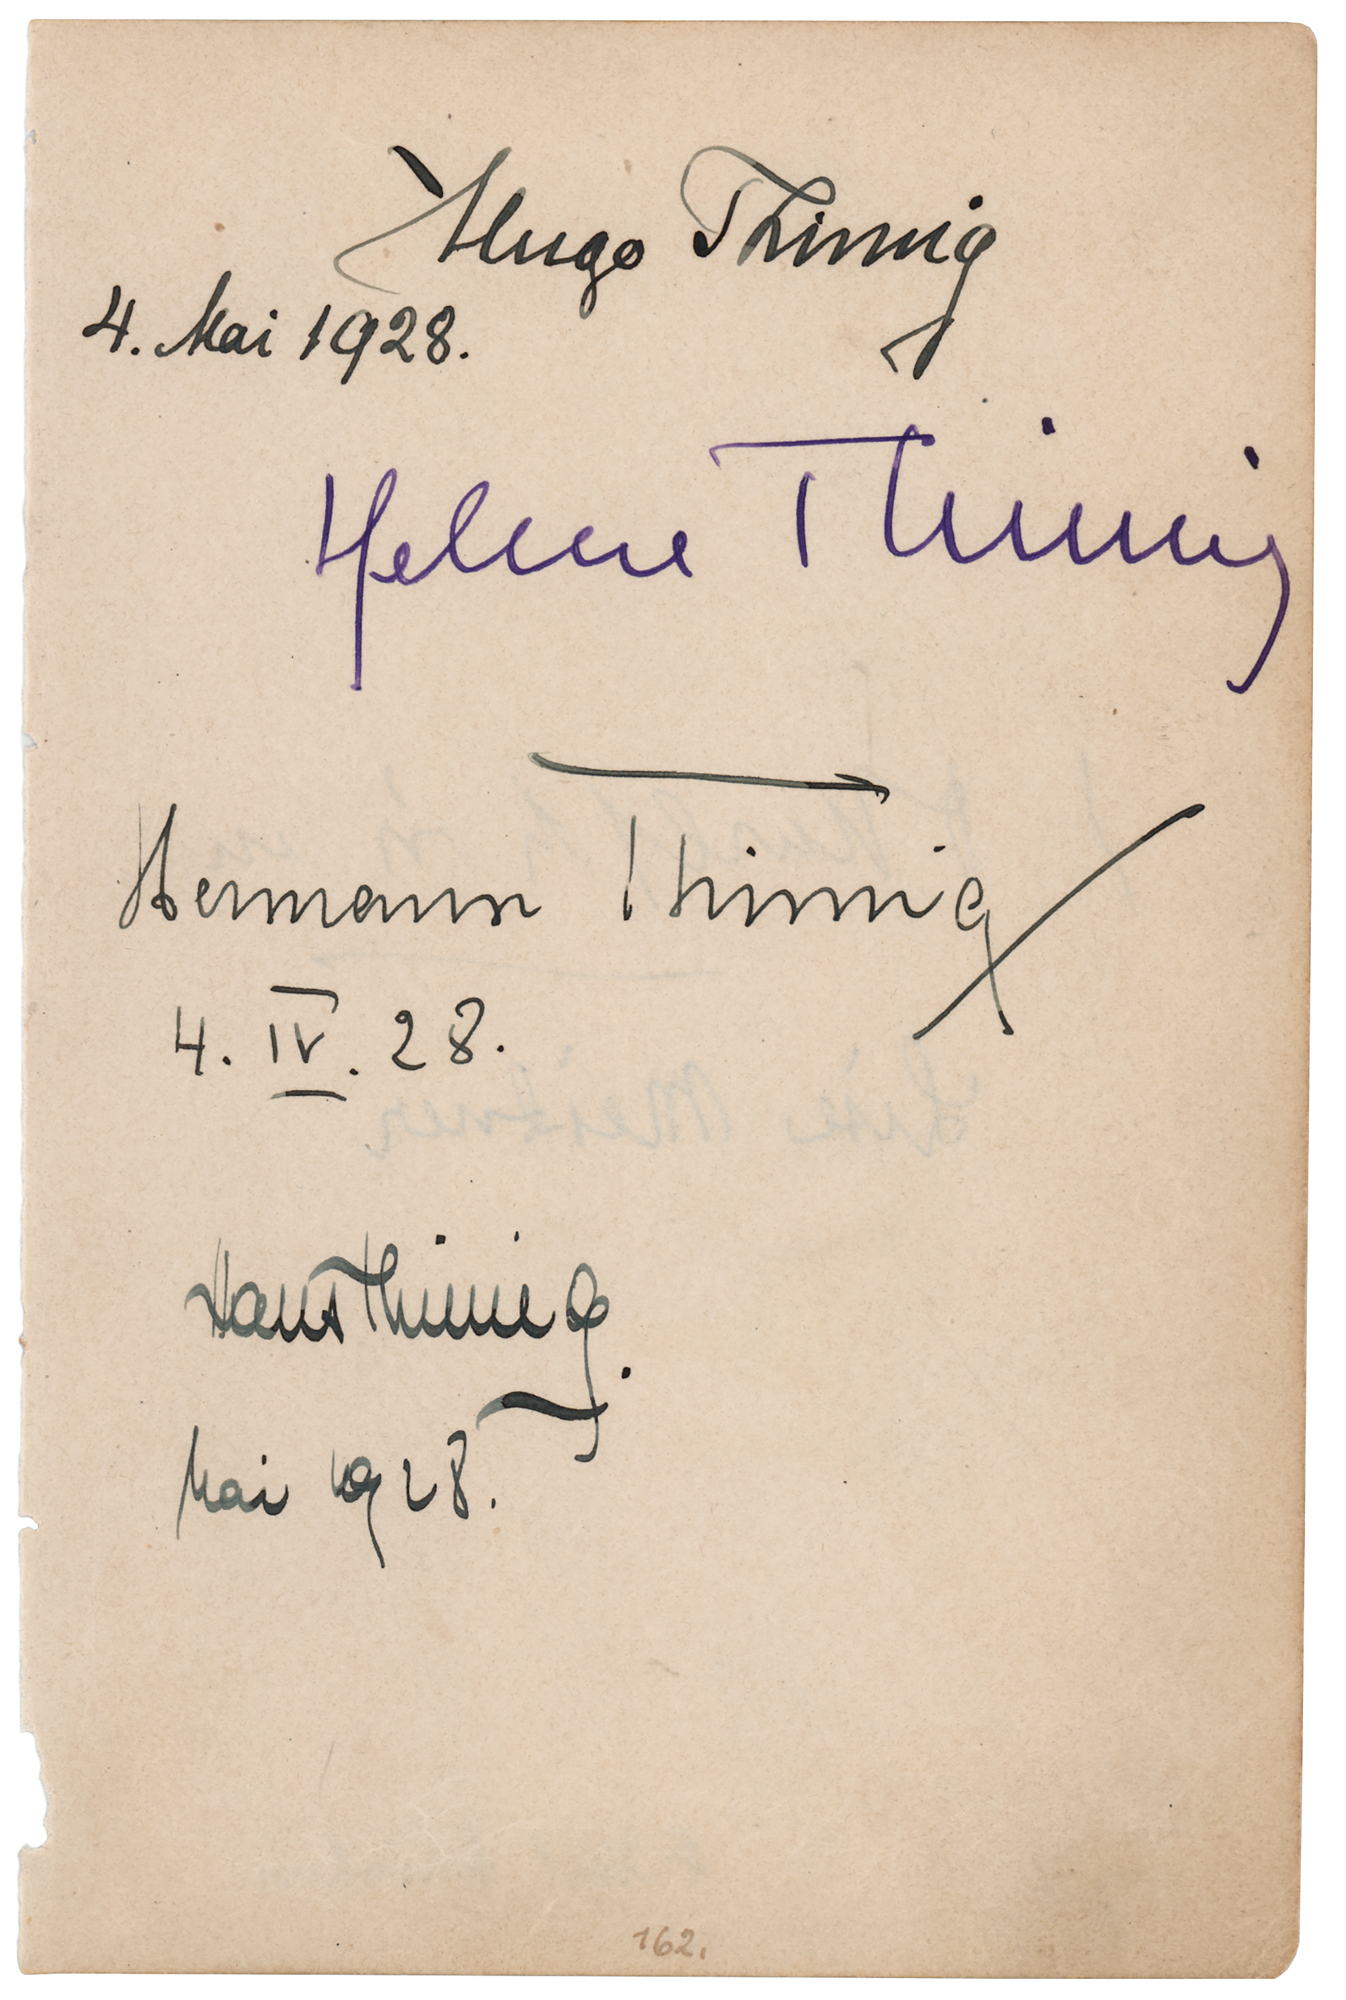 Hugo Thimig
4. Mai 1928.
Helene Thimig
Hermann Thimig
4. IV. 28.
Hans Thimig.
Mai 1928.
162.